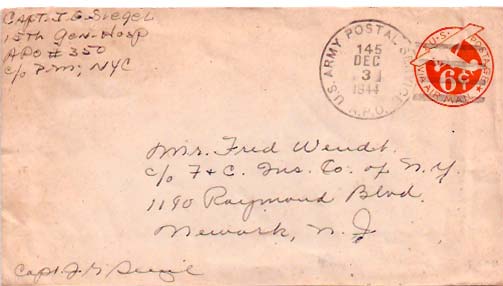 Capt. J. G. Siegel
15th Gen. Hosp
APO # 350
c/o P.M., NYC
U.S. ARMY POSTAL SERVICE
145
DEC
3
1944
A.P.O.
U.S. POSTAGE
6¢
VIA AIR MAIL
Mr. Fred Wendt.
c/o F + C. Ins. Co. of N.Y.
1180 Raymond Blvd.
Newark, N. J
Capt. J. G. Siegel